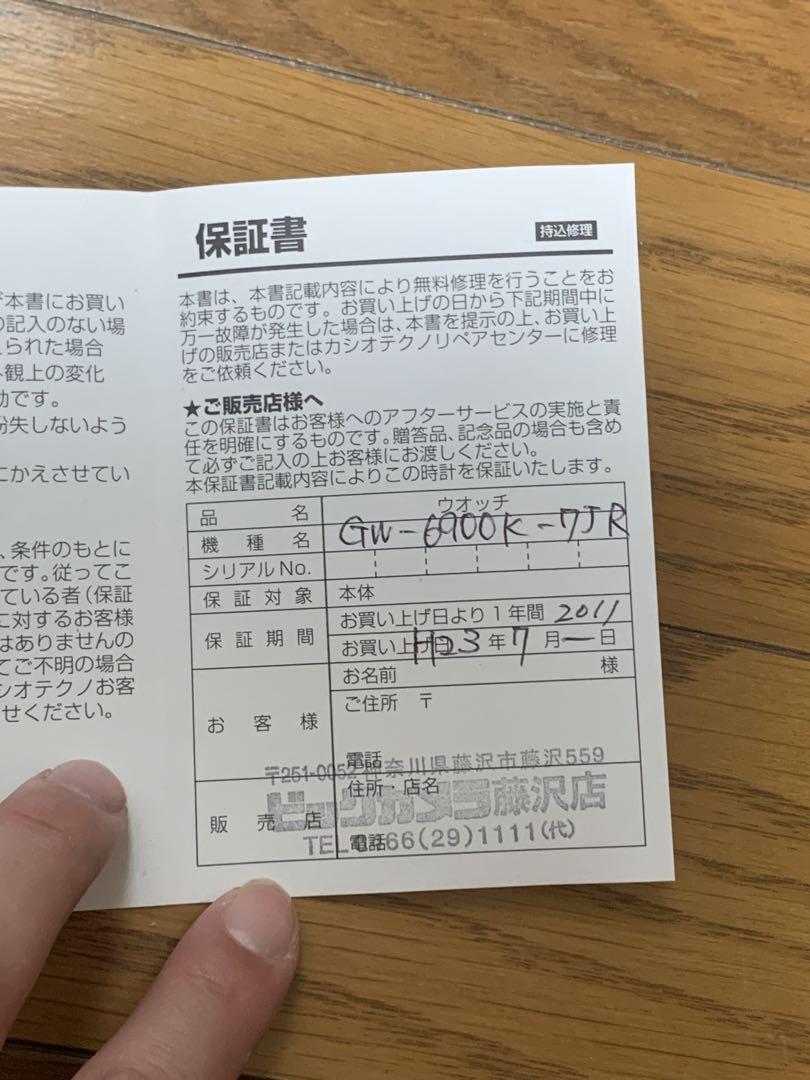 ず本書にお買い
の記入のない場
えられた場合
外観上の変化
効です。
紛失しないよう
にかえさせてい
、条件のもとに
です。従ってこ
ている者(保証
に対するお客様
はありませんの
てご不明の場合
シオテクノお客
せください。
保証書
持込修理
本書は、本書記載内容により無料修理を行うことをお
約束するものです。お買い上げの日から下記期間中に
万一故障が発生した場合は、本書を提示の上、お買い上
げの販売店またはカシオテクノリペアセンターに修理
をご依頼ください。
★ご販売店様へ
この保証書はお客様へのアフターサービスの実施と責
任を明確にするものです。贈答品、記念品の場合も含め
て必ずご記入の上お客様にお渡しください。
本保証書記載内容によりこの時計を保証いたします。
品名 ウオッチ
機種名 GW-6900K-7JR
シリアルNo.
保証対象 本体
保証期間 お買い上げ日より1年間 2011
お買い上げ日 H23年7月―日
お客様 お名前 様
ご住所 〒
電話
〒251-0052 神奈川県藤沢市藤沢559
販売店 住所・店名
ビックカメラ藤沢店
電話
TEL 0466(29)1111(代)